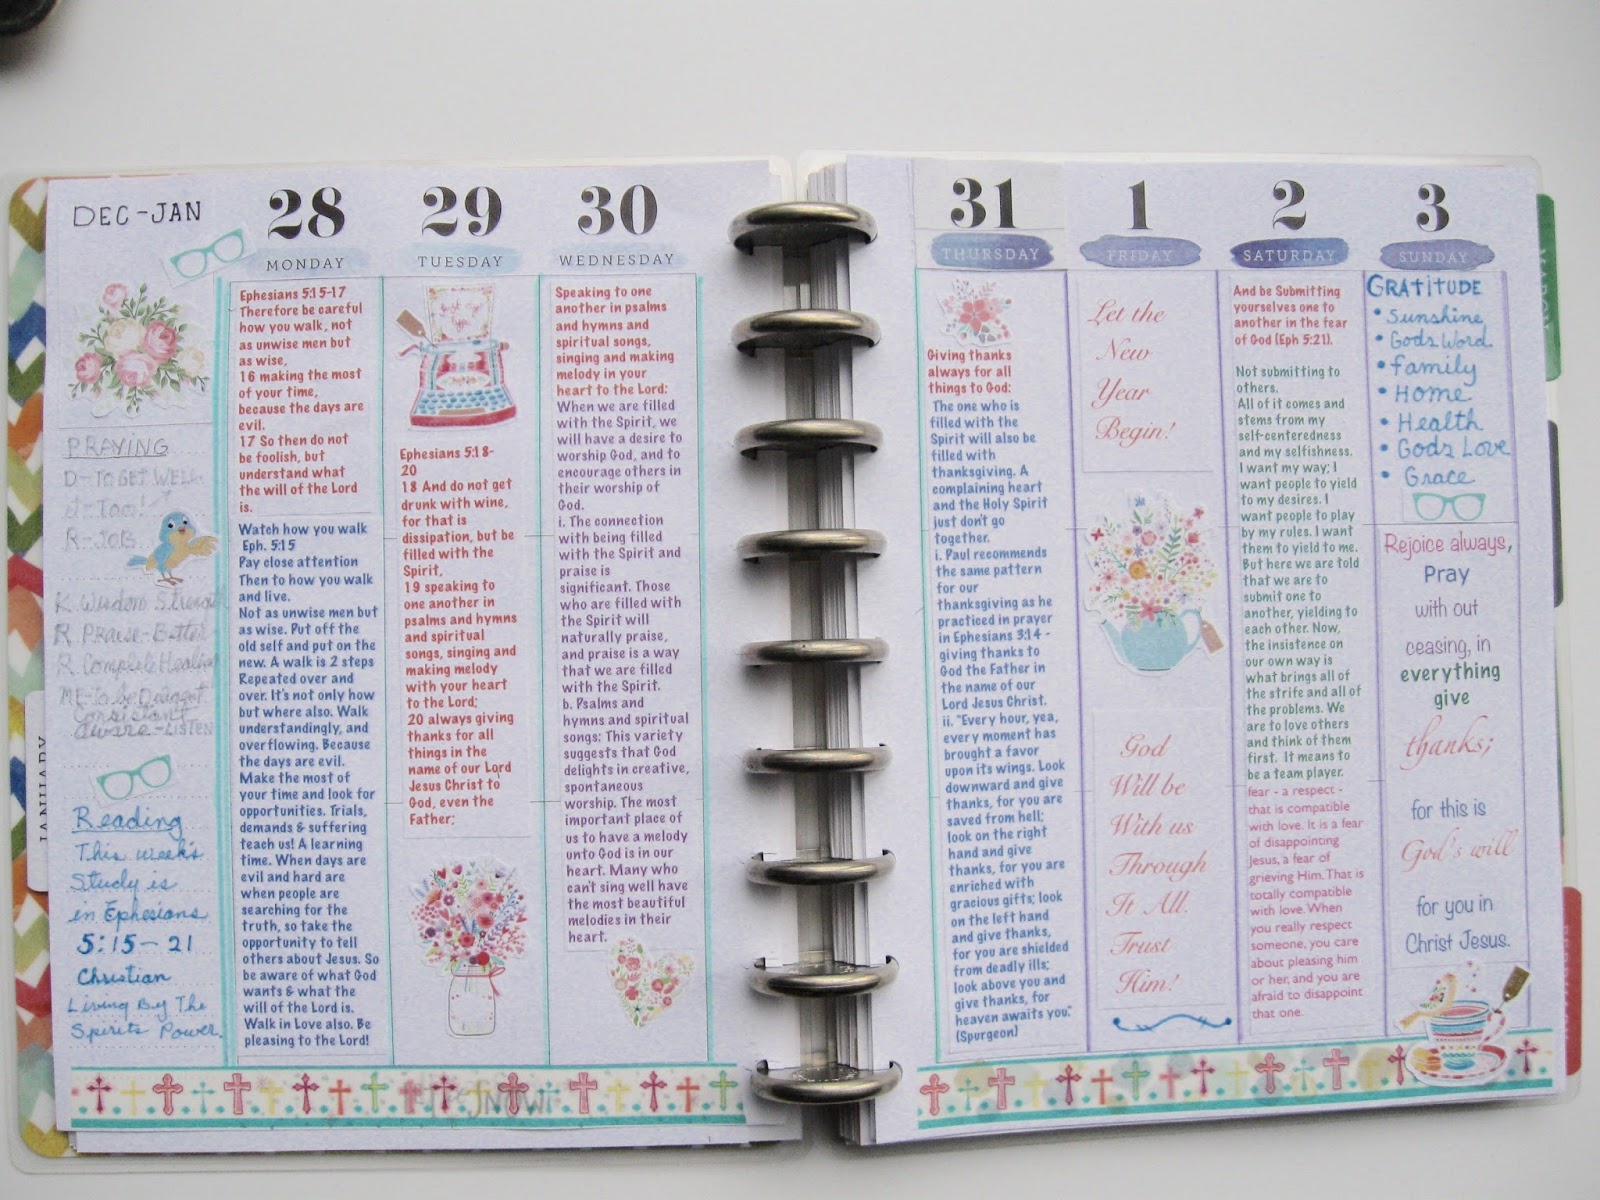 DEC-JAN
PRAYING
D-TO GET WELL
R-JOB
K. Wisdom Strength
R. PRAISE-Better
R. Complete Healing
ME-To be Diligent
Consistant
aware-LISTEN
Reading
This week's
Study is
in Ephesians
5:15-21
Christian
Living By The
Spirits Power.
JANUARY
28
MONDAY
Ephesians 5:15-17
Therefore be careful
how you walk, not
as unwise men but
as wise,
16 making the most
of your time,
because the days are
evil.
17 So then do not
be foolish, but
understand what
the will of the Lord
is.
Watch how you walk
Eph. 5:15
Pay close attention
Then to how you walk
and live.
Not as unwise men but
as wise. Put off the
old self and put on the
new. A walk is 2 steps
Repeated over and
over. It's not only how
but where also. Walk
understandingly, and
overflowing. Because
the days are evil.
Make the most of
your time and look for
opportunities. Trials,
demands & suffering
teach us! A learning
time. When days are
evil and hard are
when people are
searching for the
truth, so take the
opportunity to tell
others about Jesus. So
be aware of what God
wants & what the
will of the Lord is.
Walk in Love also. Be
pleasing to the Lord!
29
TUESDAY
Ephesians 5:18-
20
18 And do not get
drunk with wine,
for that is
dissipation, but be
filled with the
Spirit,
19 speaking to
one another in
psalms and hymns
and spiritual
songs, singing and
making melody
with your heart
to the Lord;
20 always giving
thanks for all
things in the
name of our Lord
Jesus Christ to
God, even the
Father;
30
WEDNESDAY
Speaking to one
another in psalms
and hymns and
spiritual songs,
singing and making
melody in your
heart to the Lord:
When we are filled
with the Spirit, we
will have a desire to
worship God, and to
encourage others in
their worship of
God.
i. The connection
with being filled
with the Spirit and
praise is
significant. Those
who are filled with
the Spirit will
naturally praise,
and praise is a way
that we are filled
with the Spirit.
b. Psalms and
hymns and spiritual
songs: This variety
suggests that God
delights in creative,
spontaneous
worship. The most
important place of
us to have a melody
unto God is in our
heart. Many who
can't sing well have
the most beautiful
melodies in their
heart.
31
THURSDAY
Giving thanks
always for all
things to God:
The one who is
filled with the
Spirit will also be
filled with
thanksgiving. A
complaining heart
and the Holy Spirit
just don't go
together.
i. Paul recommends
the same pattern
for our
thanksgiving as he
practiced in prayer
in Ephesians 3:14 -
giving thanks to
God the Father in
the name of our
Lord Jesus Christ.
ii. "Every hour, yea,
every moment has
brought a favor
upon its wings. Look
downward and give
thanks, for you are
saved from hell;
look on the right
hand and give
thanks, for you are
enriched with
gracious gifts; look
on the left hand
and give thanks,
for you are shielded
from deadly ills;
look above you and
give thanks, for
heaven awaits you."
(Spurgeon)
1
FRIDAY
Let the
New
Year
Begin!
God
Will be
With us
Through
It All.
Trust
Him!
2
SATURDAY
And be Submitting
yourselves one to
another in the fear
of God (Eph 5:21).
Not submitting to
others.
All of it comes and
stems from my
self-centeredness
and my selfishness.
I want my way; I
want people to yield
to my desires. I
want people to play
by my rules. I want
them to yield to me.
But here we are told
that we are to
submit one to
another, yielding to
each other. Now,
the insistence on
our own way is
what brings all of
the strife and all of
the problems. We
are to love others
and think of them
first. It means to
be a team player.
fear - a respect -
that is compatible
with love. It is a fear
of disappointing
Jesus, a fear of
grieving Him. That is
totally compatible
with love. When
you really respect
someone, you care
about pleasing him
or her, and you are
afraid to disappoint
that one.
3
SUNDAY
GRATITUDE
• Sunshine
• Gods Word
• family
• Home
• Health
• Gods Love
• Grace
Rejoice always,
Pray
with out
ceasing, in
everything
give
thanks;
for this is
God's will
for you in
Christ Jesus.